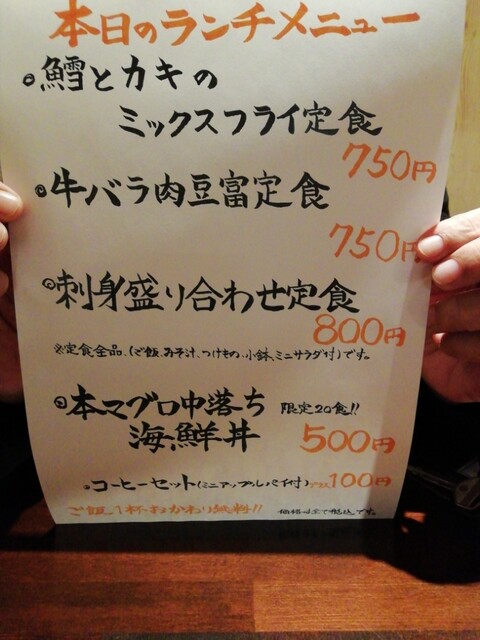 本日のランチメニュー
鱈とカキの
ミックスフライ定食
750円
牛バラ肉豆富定食
750円
刺身盛り合わせ定食
800円
※定食全品、(ご飯、みそ汁、つけもの、小鉢、ミニサラダ付)です。
本マグロ中落ち 限定20食!!
海鮮丼 500円
コーヒーセット(ミニアップルパイ付)プラス100円
ご飯1杯おかわり無料!! 価格は全て税込です。